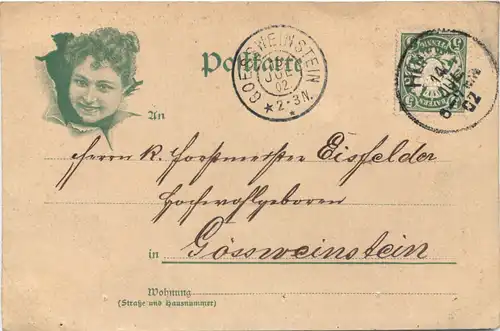 Postkarte
GOESSWEINSTEIN
02
2-3N.
14
02
BAYERN
5
An
Herrn K. Forstmeister Eisfelder
Hochwohlgeboren
in Gössweinstein
Wohnung
(Straße und Hausnummer)